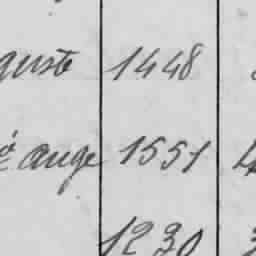 guste 1448
é ange 1551
1230